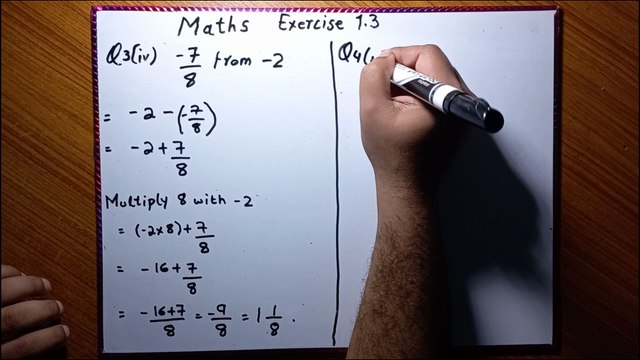 Maths Exercise 1.3
Q3(iv) -7/8 from -2
= -2 - (-7/8)
= -2 + 7/8
Multiply 8 with -2
= (-2x8) + 7/8
= -16 + 7/8
= -16+7/8 = -9/8 = 1 1/8 .
Q4(